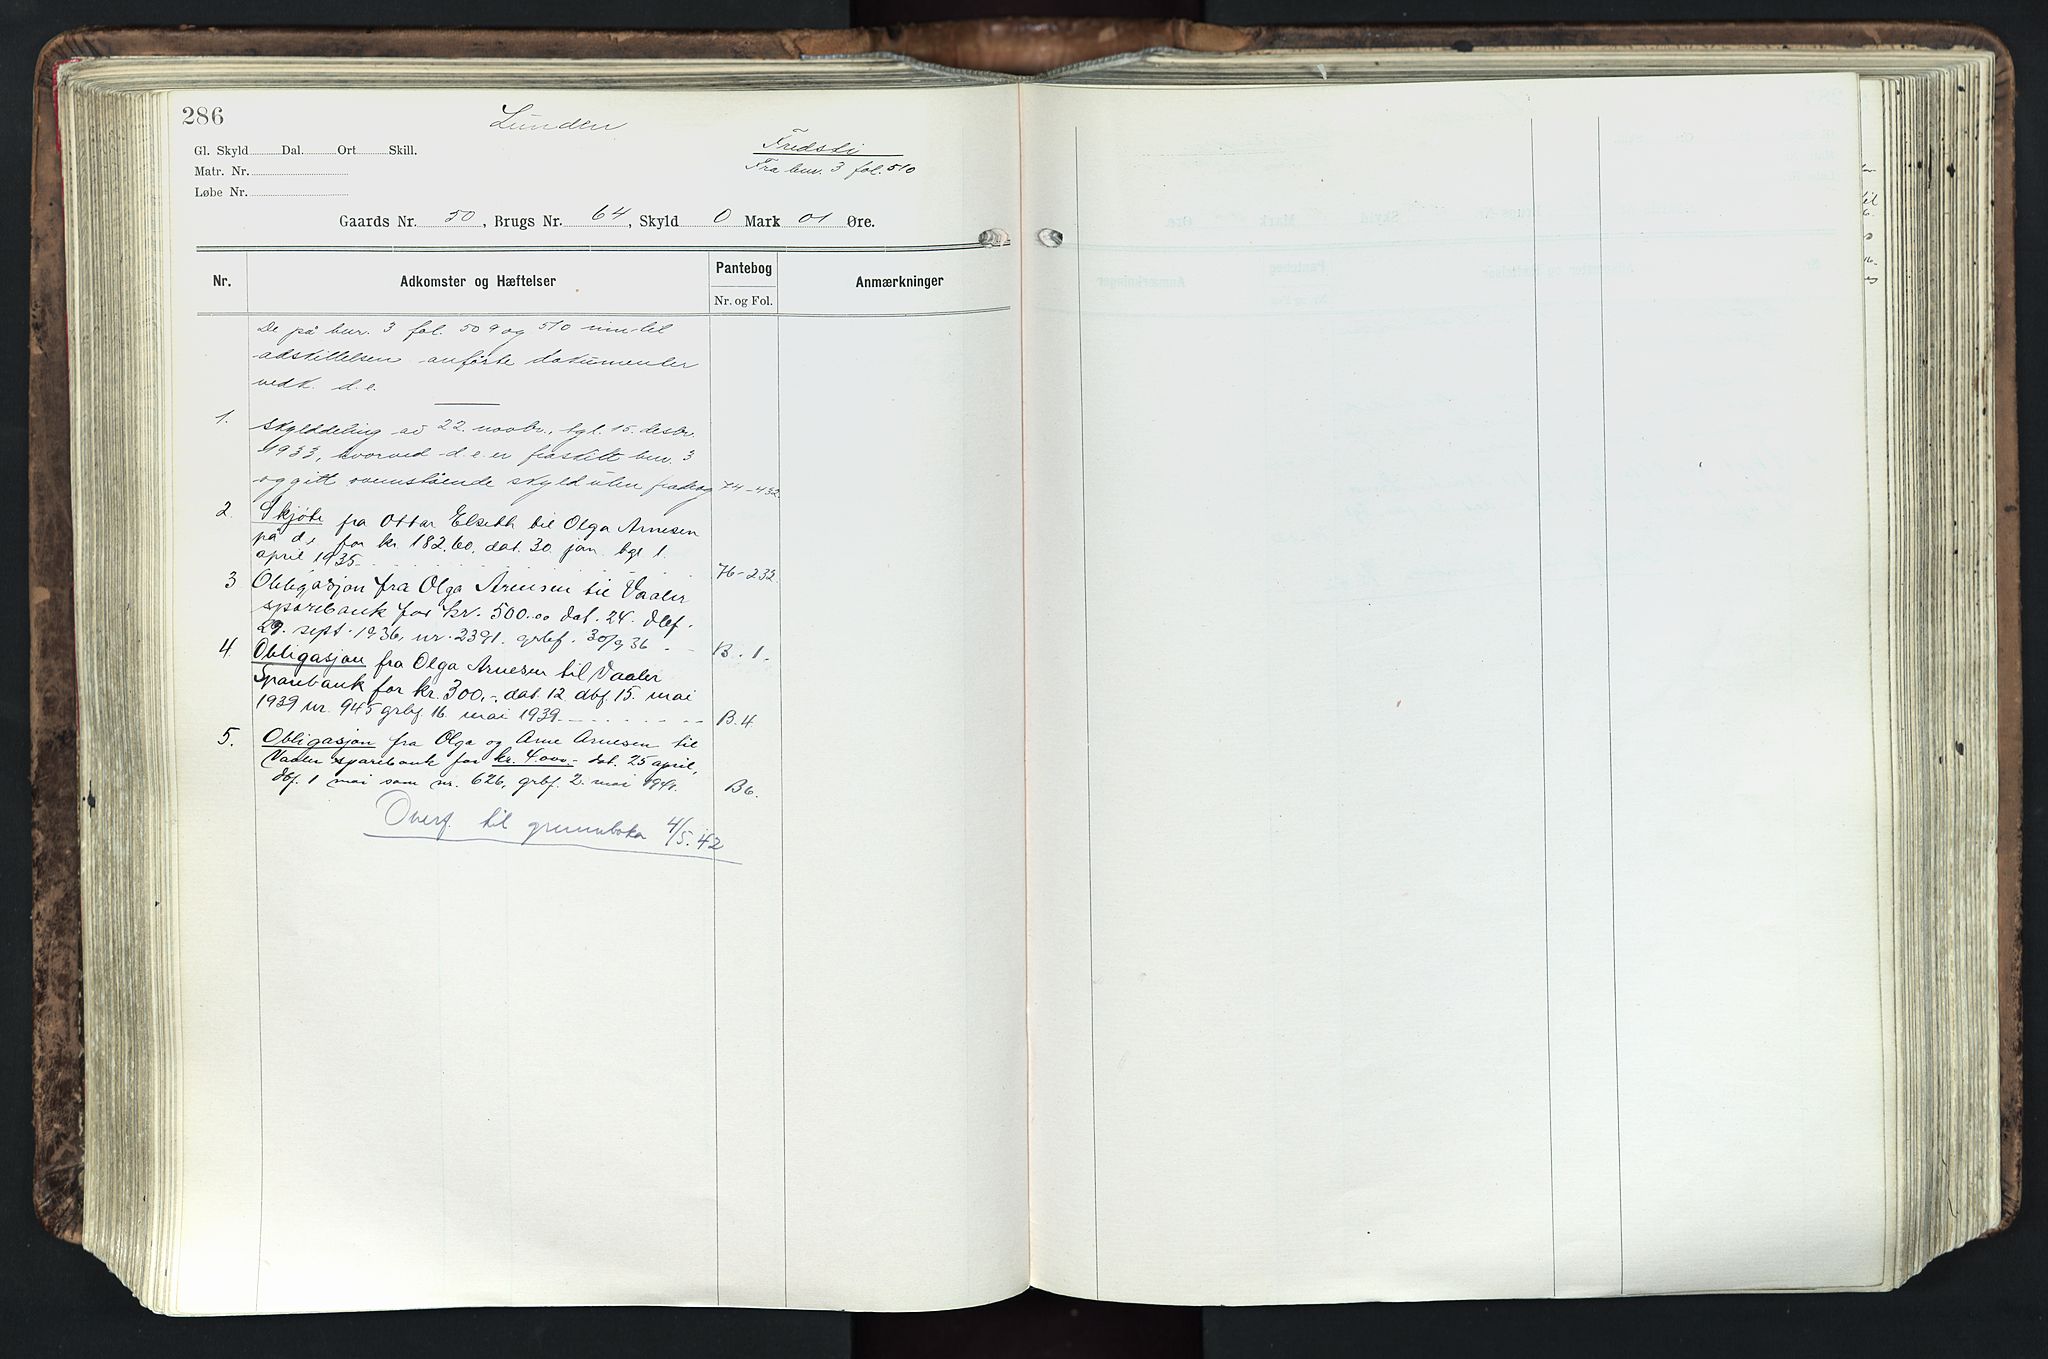 286
Lunden
Gl. Skyld Dal. Ort Skill.
Fredsti
Matr. Nr.
Fra bnr. 3 fol. 510
Løbe Nr.
Gaards Nr. 50, Brugs Nr. 64, Skyld 0 Mark 01 Øre.
Nr.
Adkomster og Hæftelser
Pantebog
Nr. og Fol.
Anmærkninger
De på bnr. 3 fol. 509 og 510 inn-til
adskillelsen anførte dokumenter
vedk. d.e.
1. Skylddeling av 22. novbr., tgl. 15. desbr.
1933, hvorved d.e. er fraskilt bnr. 3
og gitt ovenstående skyld uten fradrag 74-432
2. Skjøte fra Ottar Elseth til Olga Arnesen
på d.e. for kr. 182.60, dat. 30. jan. tgl 1.
april 1935 76-232
3 Obligasjon fra Olga Arnesen til Vaaler
sparebank for kr. 500.00 dat. 24. dbf.
29. sept. 1936, nr. 2391. grbf. 30/9 36 B. 1.
4. Obligasjon fra Olga Arnesen til Vaaler
Sparebank for kr. 300,- dat. 12. dbf. 15. mai
1939 nr. 945 grbf. 16. mai 1939. B.4.
5. Obligasjon fra Olga og Arne Arnesen til
Vaaler sparebank for kr. 4.000.- dat. 25 april,
dbf. 1 mai som nr. 626, grbf. 2. mai 1941. B6.
Overf. til grunnboka 4/5.42